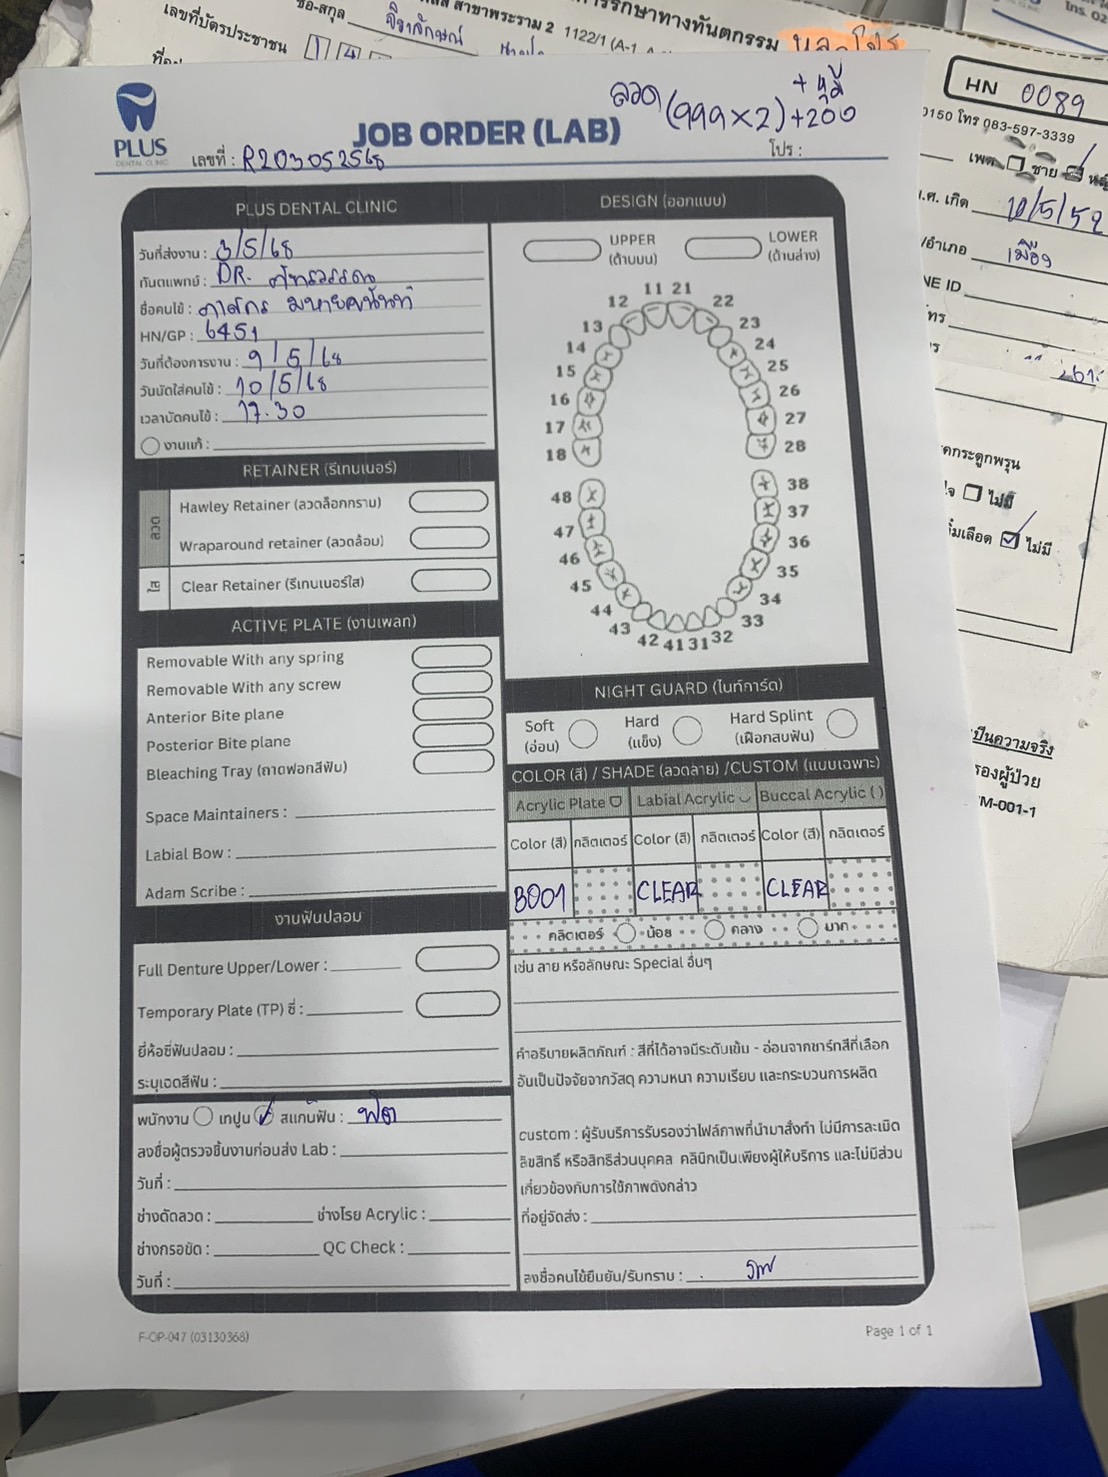 ชื่อ-สกุล จิราลักษณ์
สาขาพระราม 2 1122/1 (A-1
การรักษาทางทันตกรรม
เลขที่บัตรประชาชน 1 4
โทร. 02
HN 0089
0150 โทร 083-597-3339
เพศ ชาย
เกิด 10/5/52
อำเภอ เมือง
NE ID
ไม่มี
ไม่มี
เป็นความจริง
M-001-1
PLUS
DENTAL CLINIC
JOB ORDER (LAB)
ลวด (999×2)+200
เลขที่ : R203052568
โปร :
PLUS DENTAL CLINIC
วันที่ส่งงาน : 3/5/68
ทันตแพทย์ : DR.
ชื่อคนไข้ :
HN/GP : 6451
วันที่ต้องการงาน : 9/5/68
วันนัดใส่คนไข้ : 10/5/68
เวลานัดคนไข้ : 17.30
งานแก้ :
RETAINER (รีเทนเนอร์)
ลวด
Hawley Retainer (ลวดล็อกกราม)
Wraparound retainer (ลวดล้อม)
ใส
Clear Retainer (รีเทนเนอร์ใส)
ACTIVE PLATE (งานเพลท)
Removable With any spring
Removable With any screw
Anterior Bite plane
Posterior Bite plane
Bleaching Tray (ถาดฟอกสีฟัน)
Space Maintainers :
Labial Bow :
Adam Scribe :
งานฟันปลอม
Full Denture Upper/Lower :
Temporary Plate (TP) ซี่ :
ยี่ห้อซี่ฟันปลอม :
ระบุเฉดสีฟัน :
พนักงาน เทปูน สแกนฟัน :
ลงชื่อผู้ตรวจชิ้นงานก่อนส่ง Lab :
วันที่ :
ช่างดัดลวด : ช่างโรย Acrylic :
ช่างกรอขัด : QC Check :
วันที่ :
DESIGN (ออกแบบ)
UPPER (ด้านบน) LOWER (ด้านล่าง)
11 21
12 22
13 23
14 24
15 25
16 26
17 27
18 28
48 38
47 37
46 36
45 35
44 34
43 33
42 41 31 32
NIGHT GUARD (ไนท์การ์ด)
Soft (อ่อน) Hard (แข็ง) Hard Splint (เฝือกสบฟัน)
COLOR (สี) / SHADE (ลวดลาย) /CUSTOM (แบบเฉพาะ)
Acrylic Plate Labial Acrylic Buccal Acrylic ( )
Color (สี) กลิตเตอร์ Color (สี) กลิตเตอร์ Color (สี) กลิตเตอร์
B001 CLEAR CLEAR
กลิตเตอร์ น้อย กลาง มาก
เช่น ลาย หรือลักษณะ Special อื่นๆ
คำอธิบายผลิตภัณฑ์ : สีที่ได้อาจมีระดับเข้ม - อ่อนจากชาร์ทสีที่เลือก
อันเป็นปัจจัยจากวัสดุ ความหนา ความเรียบ และกระบวนการผลิต
custom : ผู้รับบริการรับรองว่าไฟล์ภาพที่นำมาสั่งทำ ไม่มีการละเมิด
ลิขสิทธิ์ หรือสิทธิส่วนบุคคล คลินิกเป็นเพียงผู้ให้บริการ และไม่มีส่วน
เกี่ยวข้องกับการใช้ภาพดังกล่าว
ที่อยู่จัดส่ง :
ลงชื่อคนไข้ยืนยัน/รับทราบ :
F-OP-047 (03130368)
Page 1 of 1